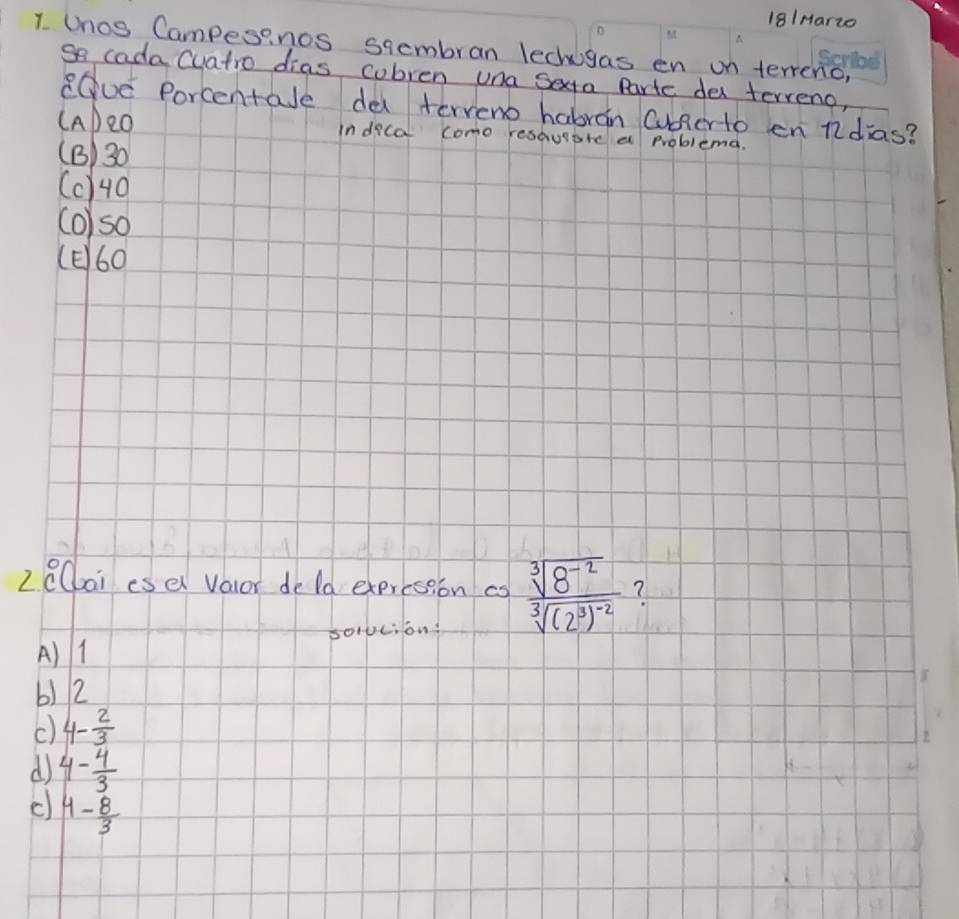 18/Marzo
1. Unos Campesinos siembran lechugas en un terreno,
Scribe
D M A
si cada cuatro dias cubren una sexta Parte del terreno,
¿Qué Porcentaje del terreno habrán cubierto en 12 dias?
(A) 20
indica como resolviste el problema.
(B) 30
(C) 40
(D) 50
(E) 60
2. ¿Cual es el valor de la expresión es \frac{\sqrt[3]{8^{-2}}}{\sqrt[3]{(2^3)^{-2}}} ?
solución:
A) 1
b) 2
c) 4-\frac{2}{3}
d) 4-\frac{4}{3}
e) 4-\frac{8}{3}